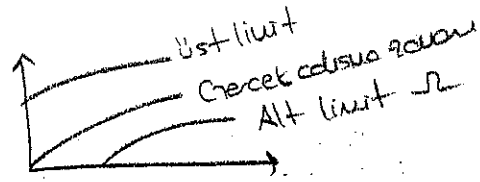 üst limit
Gercek calısma zamanı
Alt limit Ω